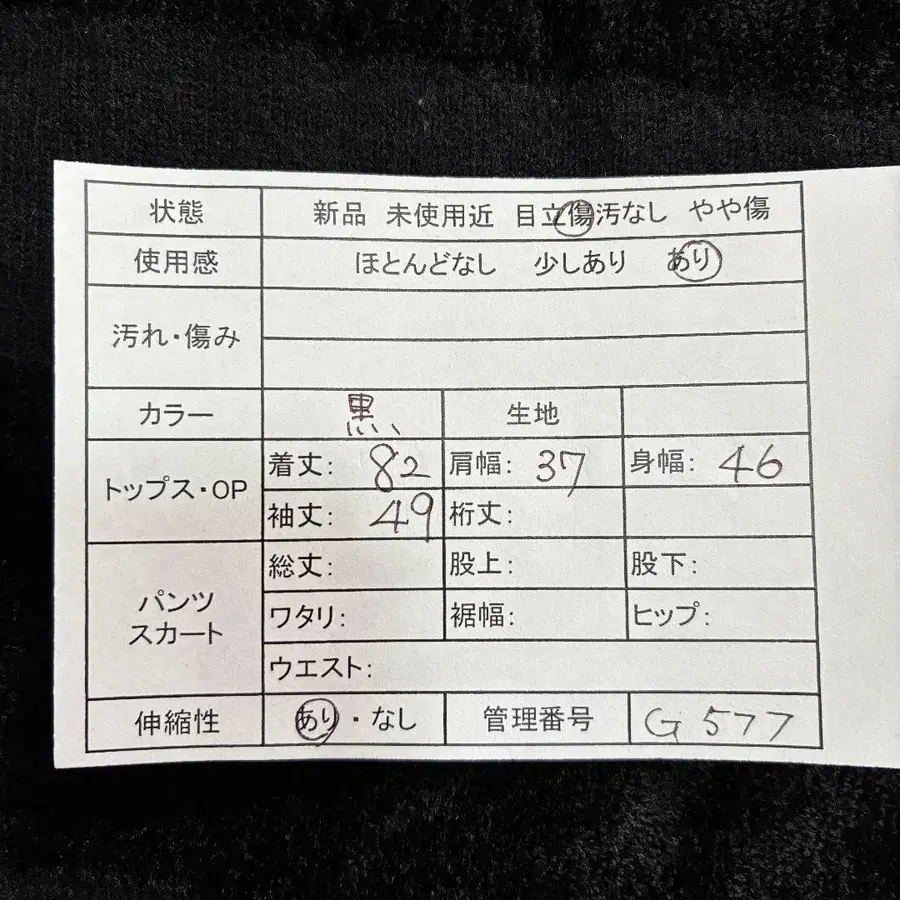 状態 新品 未使用近 目立傷汚なし やや傷
使用感 ほとんどなし 少しあり あり
汚れ・傷み
カラー 黒 生地
トップス・OP 着丈: 82 肩幅: 37 身幅: 46
袖丈: 49 裄丈:
パンツ スカート 総丈: 股上: 股下:
ワタリ: 裾幅: ヒップ:
ウエスト:
伸縮性 あり・なし 管理番号 G577